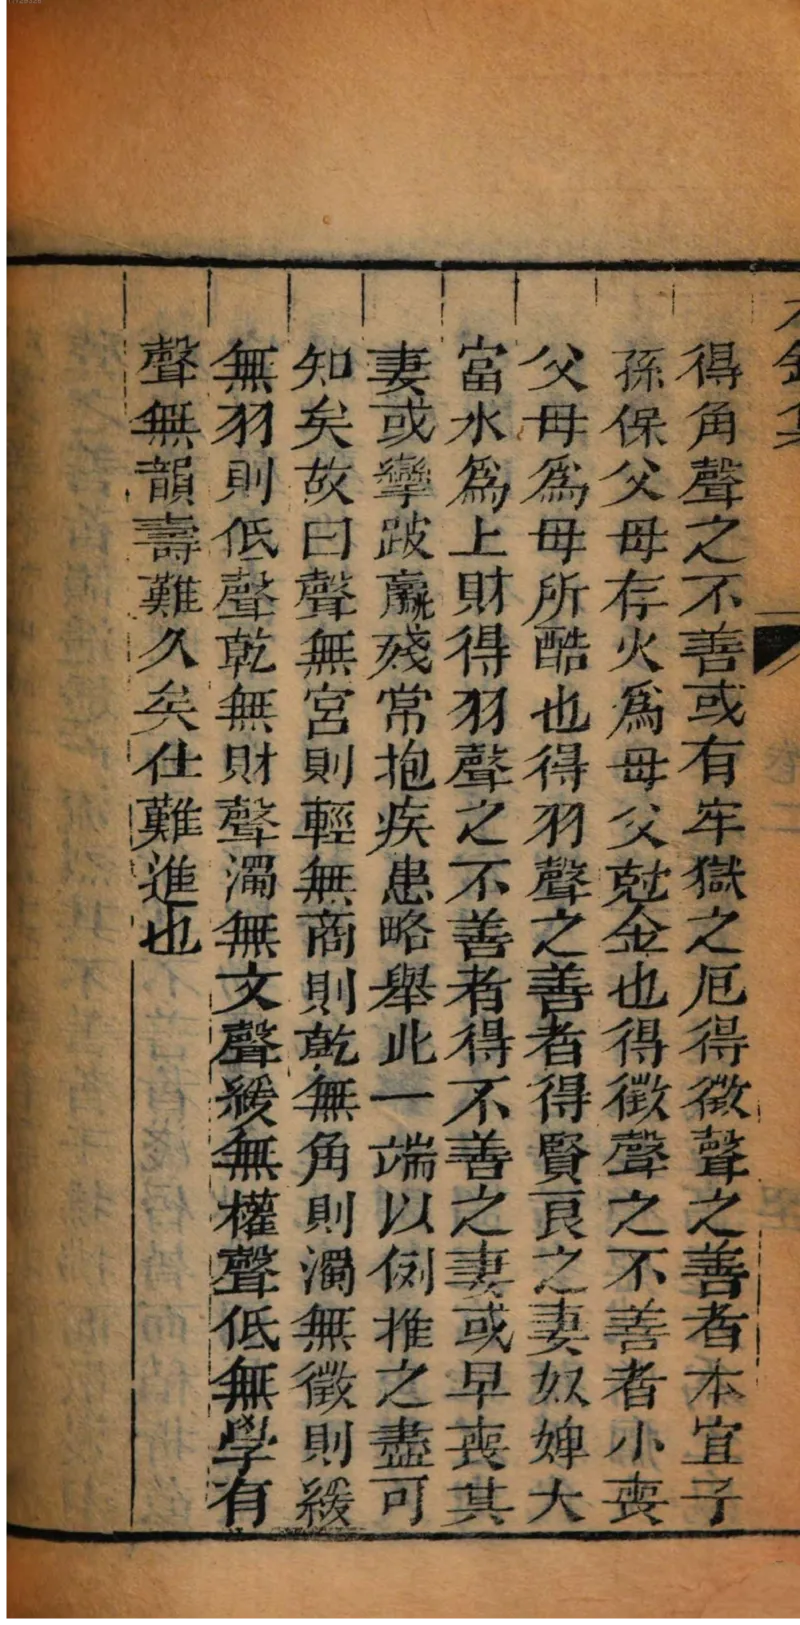 得角聲之不善或有牢獄之厄得徵聲之善者本宜子
孫保父母存火爲母父尅金也得徵聲之不善者小喪
父母爲母所酷也得羽聲之善者得賢良之妻奴婢大
富水爲上財得羽聲之不善者得不善之妻或早喪其
妻或攣跛羸殘常抱疾患略舉此一端以例推之盡可
知矣故曰聲無宮則輕無商則乾無角則濁無徵則緩
無羽則低聲乾無財聲濁無文聲緩無權聲低無學有
聲無韻壽難久矣仕難進也